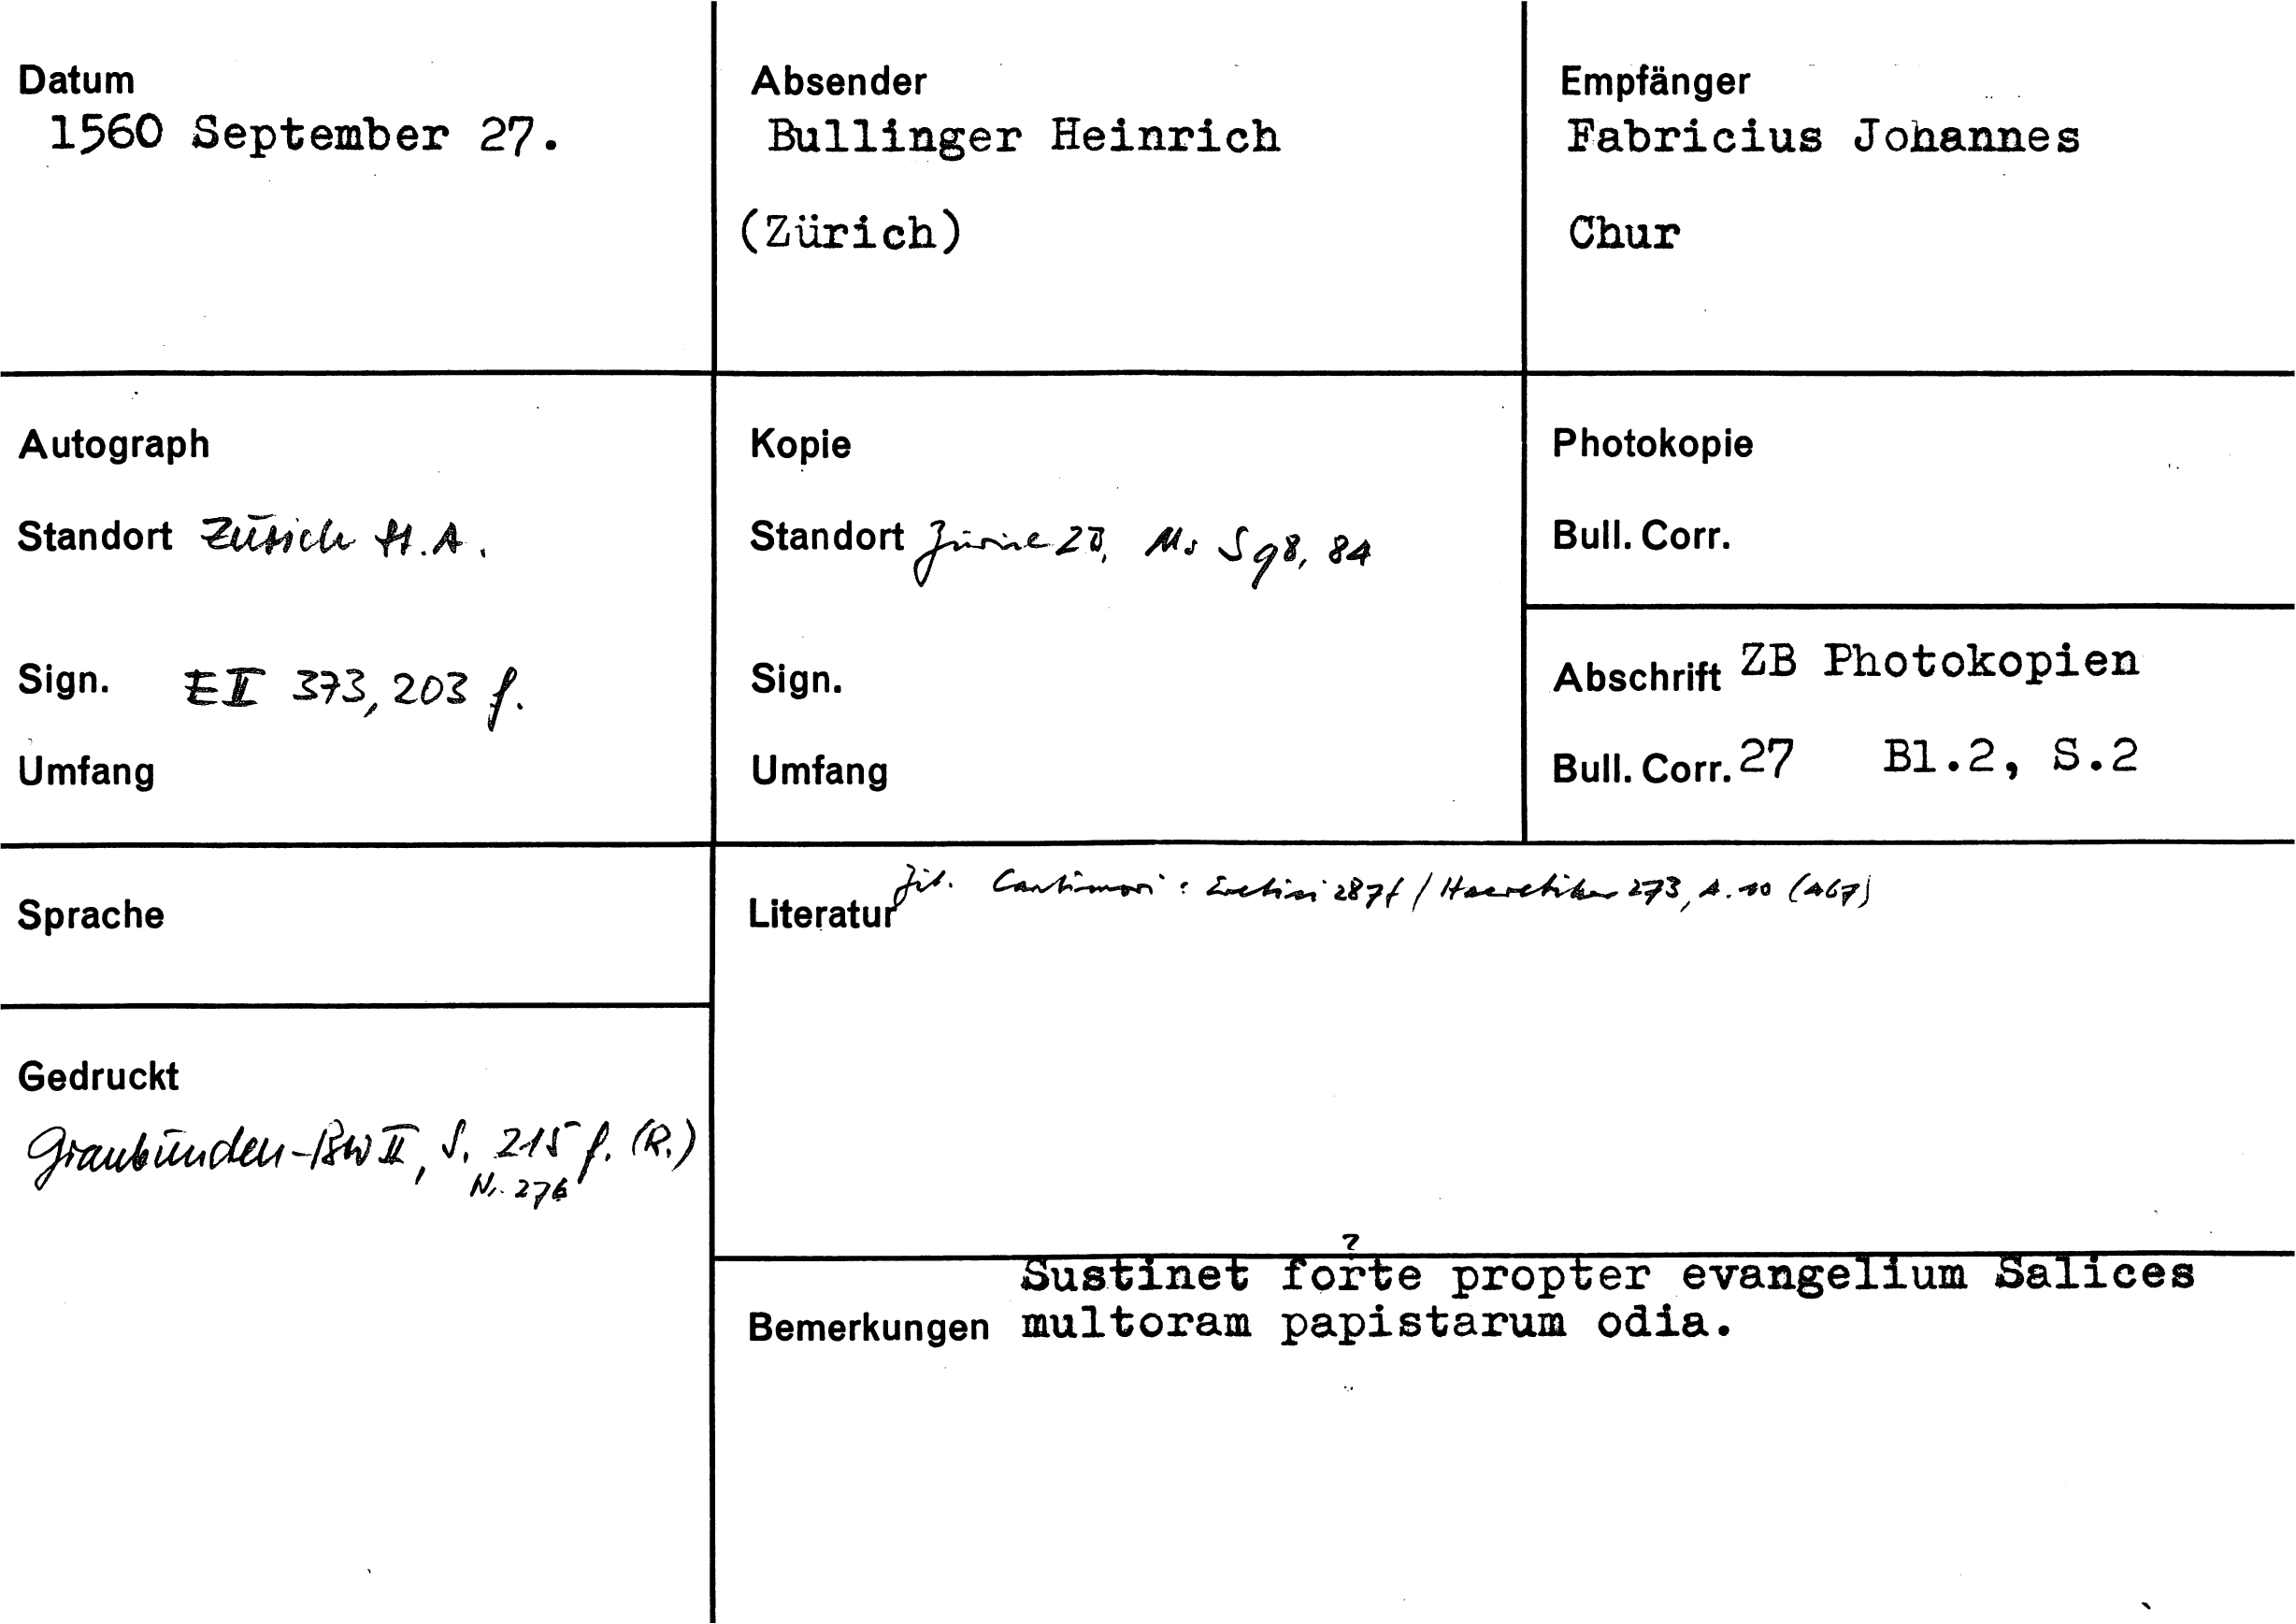 Datum
1560 September 27.
Absender
Bullinger Heinrich
(Zürich)
Empfänger
Fabricius Johannes
Chur
Autograph
Standort Zürich St.A.
Sign. E II 373, 203 f.
Umfang
Kopie
Standort Zürich ZB, Ms S 98, 84
Sign.
Umfang
Photokopie
Bull. Corr.
Abschrift ZB Photokopien
Bull. Corr. 27 Bl.2, S.2
Sprache
Literatur Zit. Cantimori: Eretici 287f / Haeretiker 273, A. 10 (467)
Gedruckt
Graubünden-BW II, S. 215 f. (R.)
Nr. 276
?
Sustinet forte propter evangelium Salices
Bemerkungen multoram papistarum odia.